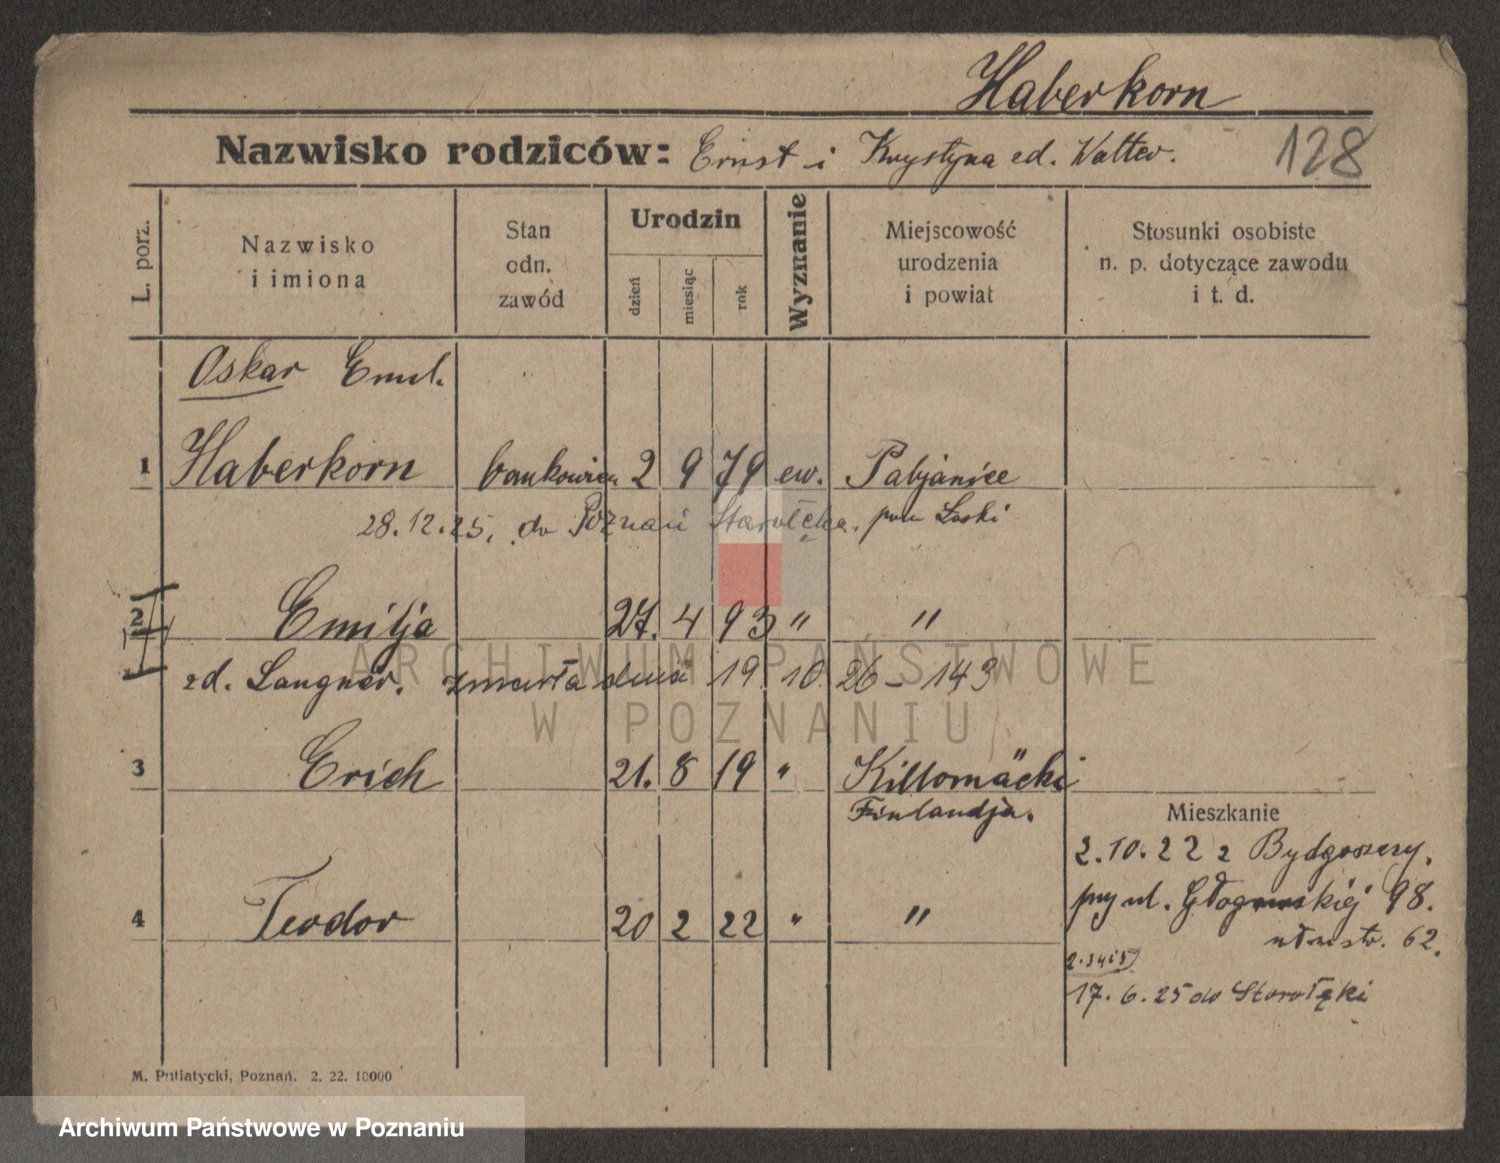 Haberkorn
Nazwisko rodziców: Ernst i Krystyna zd. Walter.
128
L. porz.
Nazwisko
i imiona
Stan
odn.
zawód
Urodzin
dzień
miesiąc
rok
Wyznanie
Miejscowość
urodzenia
i powiat
Stosunki osobiste
n. p. dotyczące zawodu
i t. d.
Oskar Emil.
1 Haberkorn bankowiec 2 9 79 ew. Pabjanice
28.12.25. do Poznań Starołęka. pow Łaski
2 Emilja 27. 4 93 " "
zd. Langner. zmarła dnia 19 10. 26 – 143
ARCHIWUM PAŃSTWOWE
W POZNANIU
3 Erich 21. 8 19 " Killomäcki
Finlandja.
Mieszkanie
2.10.22 z Bydgoszczy,
przy ul. Głogowskiej 98.
62.
4 Teodor 20 2 22 " "
17. 6. 25 do Starołęki
M. Putiatycki, Poznań. 2. 22. 10000
Archiwum Państwowe w Poznaniu